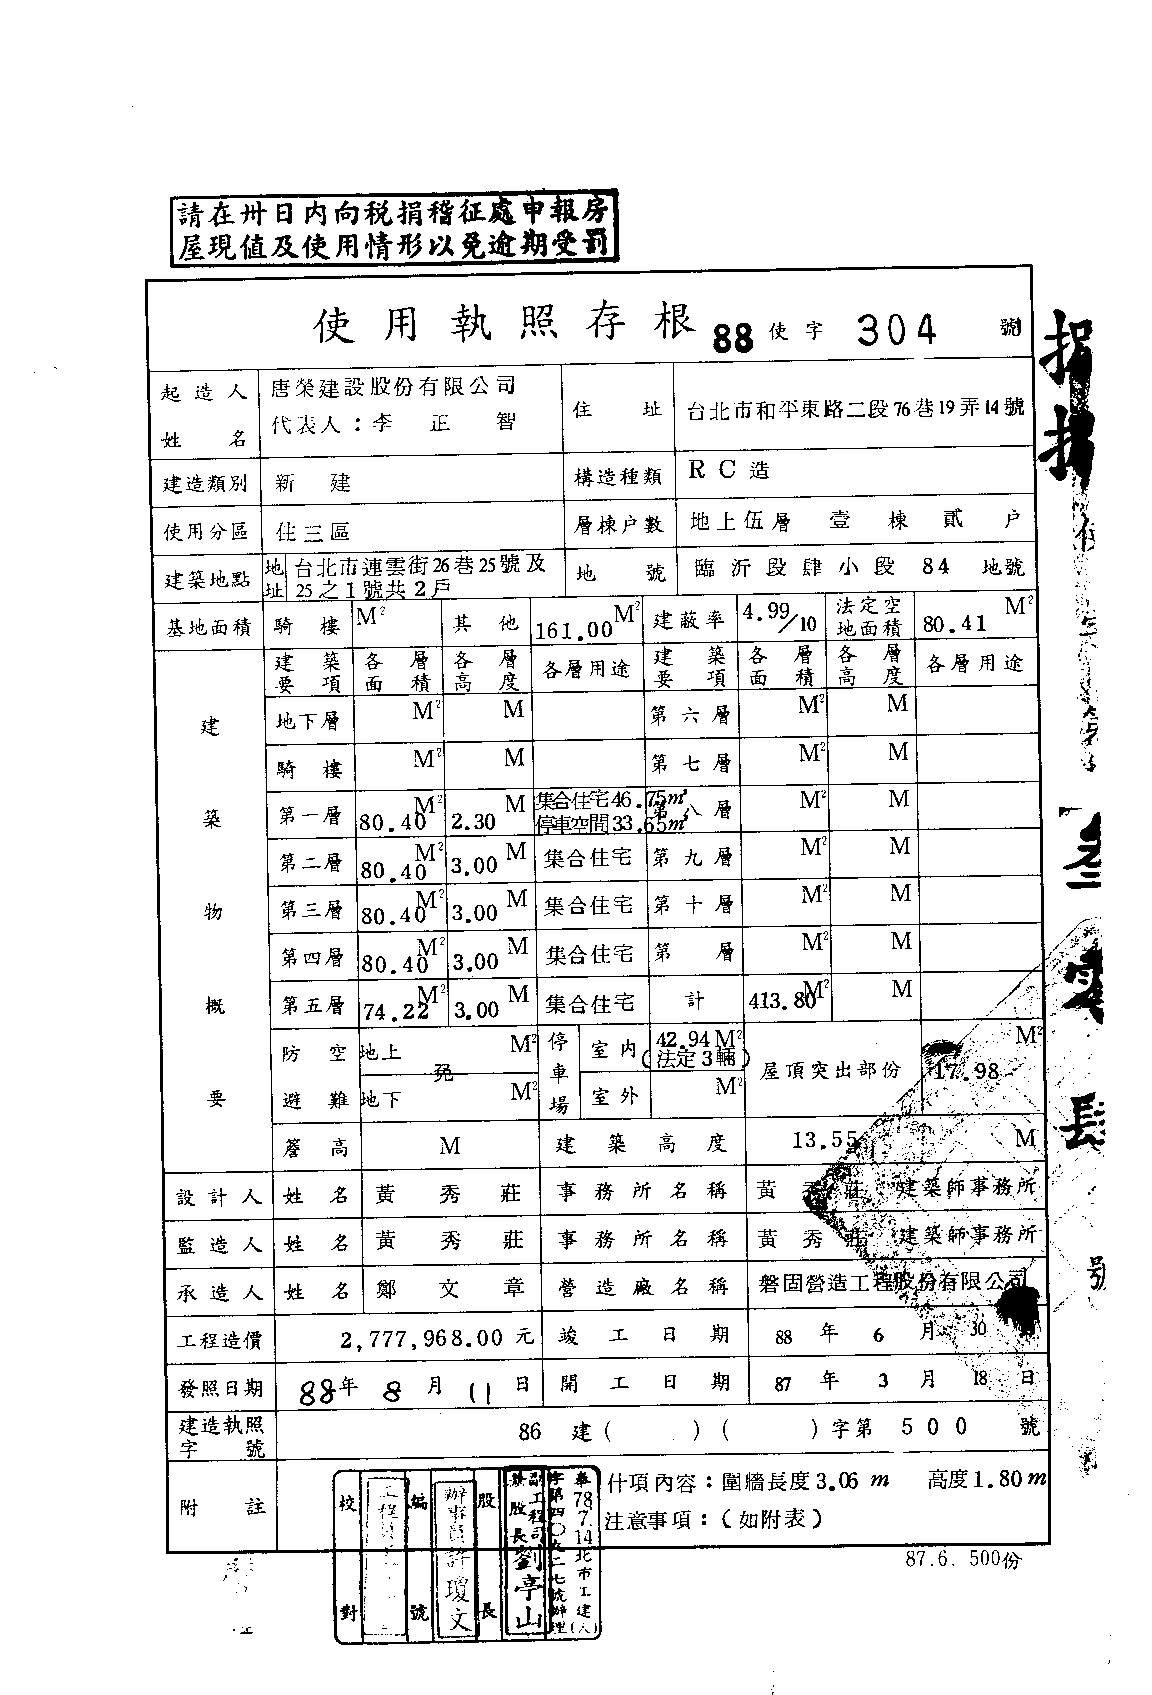 請在卅日內向稅捐稽征處申報房
屋現值及使用情形以免逾期受罰
使用執照存根 88 使字 304 號
起造人姓名 唐榮建設股份有限公司 代表人：李正智 住址 台北市和平東路二段76巷19弄14號
建造類別 新建 構造種類 RC造
使用分區 住三區 層棟户數 地上伍層壹棟貳户
建築地點 地址 台北市連雲街26巷25號及25之1號共2戶 地號 臨沂段肆小段84地號
基地面積 騎樓 M² 其他 161.00 M² 建蔽率 4.99/10 法定空地面積 80.41 M²
建築物概要
建築要項 各層面積 各層高度 各層用途 建築要項 各層面積 各層高度 各層用途
地下層 M² M 第六層 M² M
騎樓 M² M 第七層 M² M
第一層 80.40 M² 2.30 M 集合住宅46.75㎡ 停車空間33.65㎡ 第八層 M² M
第二層 80.40 M² 3.00 M 集合住宅 第九層 M² M
第三層 80.40 M² 3.00 M 集合住宅 第十層 M² M
第四層 80.40 M² 3.00 M 集合住宅 第 層 M² M
第五層 74.22 M² 3.00 M 集合住宅 計 413.80 M² M
防空避難 地上 M² 免 地下 M² 停車場 室內 42.94 M² (法定3輛) 室外 M² 屋頂突出部份 17.98 M²
簷高 M 建築高度 13.55 M
設計人 姓名 黃秀莊 事務所名稱 黃秀莊建築師事務所
監造人 姓名 黃秀莊 事務所名稱 黃秀莊建築師事務所
承造人 姓名 鄭文章 營造廠名稱 磐固營造工程股份有限公司
工程造價 2,777,968.00元 竣工日期 88年6月30日
發照日期 88年8月11日 開工日期 87年3月18日
建造執照字號 86建( )( )字第500號
附註 什項內容：圍牆長度3.06m 高度1.80m
注意事項：（如附表）
87.6.500份
校對
編號
辦事員許瓊文
股長
劉亭山
78.7.14北市工建
號